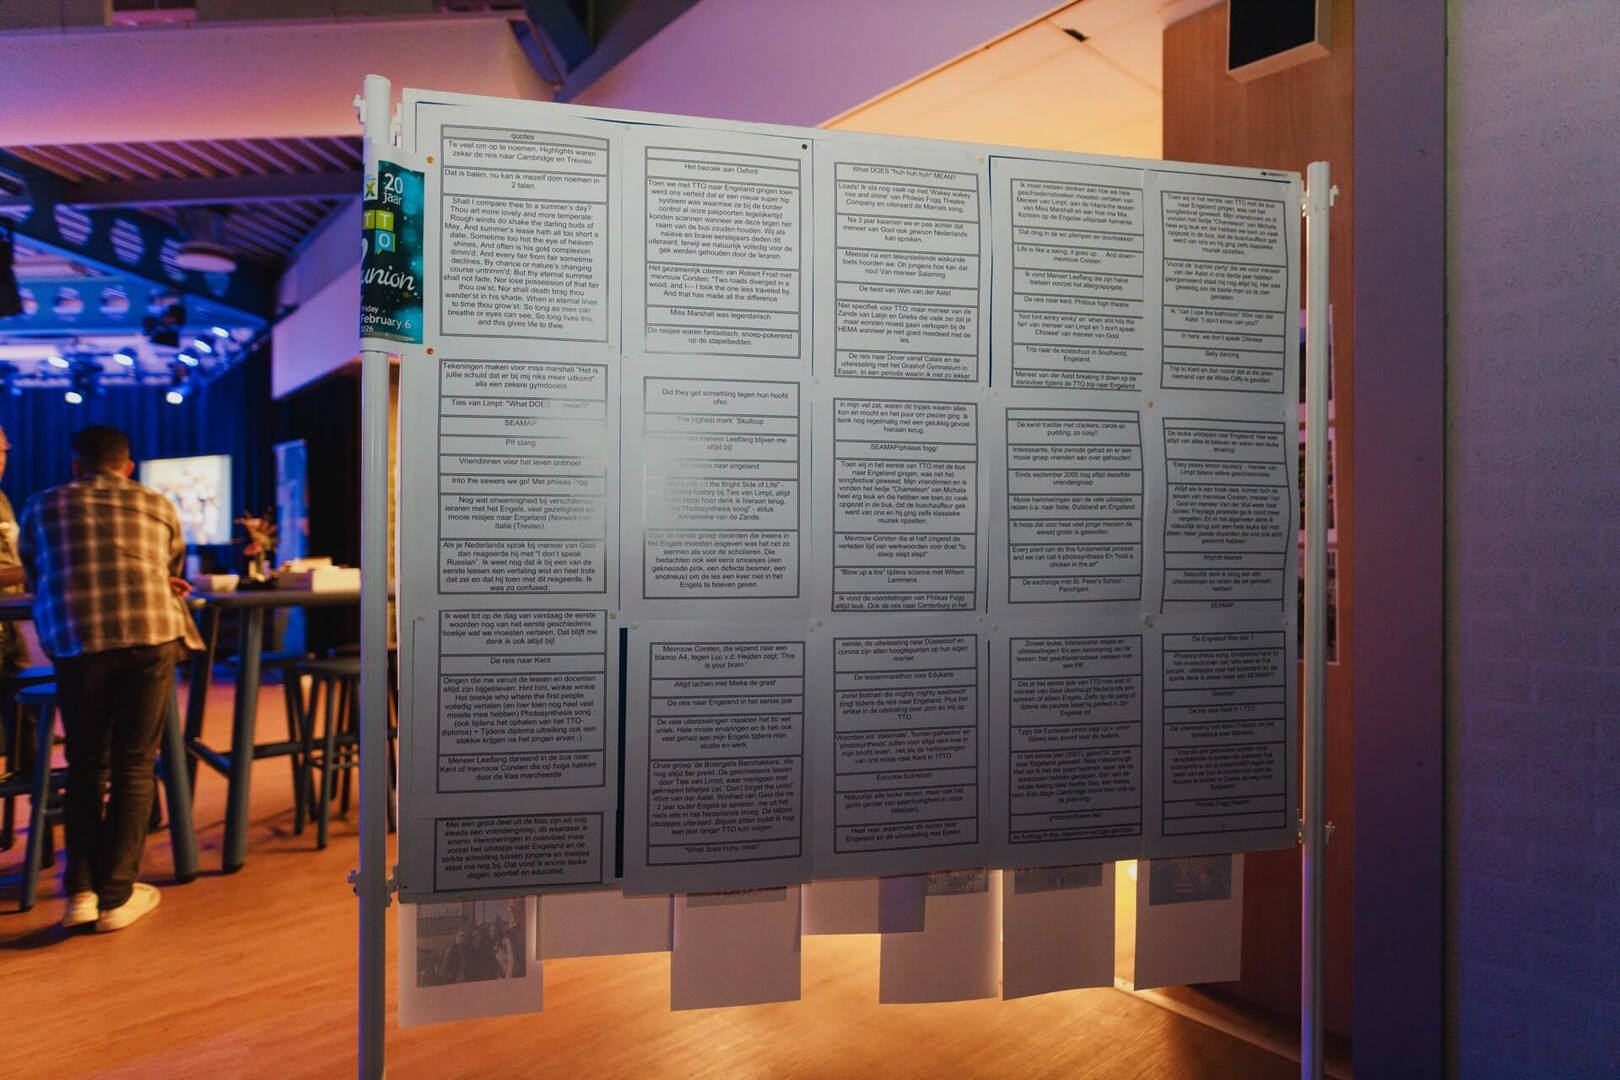 20
jaar
T T
O
union
February 6
2026
quotes
Te veel om op te noemen. Highlights waren
zeker de reis naar Cambridge en Treviso
Dat is balen, nu kan ik mezelf dom noemen in
2 talen
Shall I compare thee to a summer's day?
Thou art more lovely and more temperate:
Rough winds do shake the darling buds of
May, And summer's lease hath all too short a
date; Sometime too hot the eye of heaven
shines, And often is his gold complexion
dimm'd; And every fair from fair sometime
declines, By chance or nature's changing
course untrimm'd; But thy eternal summer
shall not fade, Nor lose possession of that fair
thou ow'st; Nor shall death brag thou
wander'st in his shade, When in eternal lines
to time thou grow'st: So long as men can
breathe or eyes can see, So long lives this,
and this gives life to thee.
Tekeningen maken voor miss marshall "Het is
jullie schuld dat er bij mij niks meer uitkomt"
alla een zekere gymdocent
Ties van Limpt: "What DOES mean?"
SEAMAP
Pif slang
Vriendinnen voor het leven ontmoet
Into the sewers we go! Met phileas fogg
Nog wat onwennigheid bij verschillende
leraren met het Engels, veel gezelligheid en
mooie reisjes naar Engeland (Norwich) en
Italië (Treviso)
Als je Nederlands sprak bij meneer van Gool
dan reageerde hij met "I don't speak
Russian". Ik weet nog dat ik bij een van de
eerste lessen een vertaling wist en heel trots
dat zei en dat hij toen met dit reageerde. Ik
was zo confused.
Ik weet tot op de dag van vandaag de eerste
woorden nog van het eerste geschiedenis
boekje wat we moesten vertalen. Dat blijft me
denk ik ook altijd bij!
De reis naar Kent
Dingen die me vanuit de lessen en docenten
altijd zijn bijgebleven: Hint hint, winkie winkie
Het boekje who where the first people
volledig vertalen (en hier toen nog heel veel
moeite mee hebben) Photosynthesis song
(ook tijdens het ophalen van het TTO-
diploma) + Tijdens diploma uitreiking ook een
stekkie krijgen na het zingen ervan :)
Meneer Leeflang dansend in de bus naar
Kent of mevrouw Corsten die op hoge hakken
door de klas marcheerde
Met een groot deel uit de klas zijn wij nog
steeds een vriendengroep, dit waardeer ik
enorm. Herinneringen in overvloed maar
vooral het uitstapje naar Engeland en de
strikte scheiding tussen jongens en meisjes
staat me nog bij. Dat vond ik enorm leuke
dagen, sportief en educatief.
Het bezoek aan Oxford
Toen we met TTO naar Engeland gingen toen
werd ons verteld dat er een nieuw super hip
systeem was waarmee ze bij de border
control al onze paspoorten tegelijkertijd
konden scannen wanneer we deze tegen het
raam van de bus zouden houden. Wij als
naïeve en brave eerstejaars deden dit
uiteraard, terwijl we natuurlijk volledig voor de
gek werden gehouden door de leraren.
Het gezamenlijk citeren van Robert Frost met
mevrouw Corsten: "Two roads diverged in a
wood, and I— I took the one less traveled by,
And that has made all the difference
Miss Marshall was legendarisch
De reisjes waren fantastisch, snoep-pokerend
op de stapelbedden.
Did they get something tegen hun hoofd
ofso
"The highest mark" "Skullcup
met meneer Leeflang blijven me
altijd bij!
De reisjes naar engeland
on the Bright Side of Life" -
history bij Ties van Limpt, altijd
dat liedje hoor denk ik hieraan terug.
"The Photosynthesis song" - aldus
Annemieke van de Zande.
Voor de eerste groep docenten die ineens in
het Engels moesten lesgeven was het net zo
wennen als voor de scholieren. Die
bedachten ook wel eens smoesjes (een
gekneusde pink, een defecte beamer, een
snotneus) om de les een keer niet in het
Engels te hoeven geven.
Mevrouw Corsten, die wijzend naar een
blanco A4, tegen Luc v.d. Heijden zegt: 'This
is your brain.'
Altijd lachen met Mieke de graaf
De reis naar Engeland in het eerste jaar
De vele uitwisselingen maakten het tto wel
uniek. Hele mooie ervaringen en ik heb ook
veel gehad aan mijn Engels tijdens mijn
studie en werk.
Onze groep 'de Botergeile Bamibakkers', die
nog altijd fier prijkt. De geschiedenis lessen
door Ties van Limpt, waar menigeen met
geknepen billetjes zat. 'Don't forget the units!'
-Wim van der Aalst. Winfried van Gool die na
2 jaar louter Engels te spreken, me uit het
niets iets in het Nederlands vroeg. De talloze
uitstapjes uiteraard. Blijven zitten zodat ik nog
een jaar langer TTO kon volgen.
"What does huhu mean"
What DOES "huh huh huh" MEAN?
Loads! Ik sta nog vaak op met 'Wakey wakey
rise and shine' van Phileas Fogg Theatre
Company en uiteraard de Mamals song.
Na 3 jaar kwamen we er pas achter dat
meneer van Gool ook gewoon Nederlands
kan spreken...
Meestal na een teleurstellende wiskunde
toets hoorden we: Oh jongens hoe kan dat
nou! Van meneer Salaming
De twist van Wim van der Aalst
Niet specifiek voor TTO, maar meneer van de
Zande van Latijn en Grieks die vaak zei dat je
maar worsten moest gaan verkopen bij de
HEMA wanneer je niet goed meedeed met de
les.
De reis naar Dover vanaf Calais en de
uitwisseling met het Grashof Gymnasium in
Essen. In een periode waarin ik niet zo lekker
in mijn vel zat, waren dit tripjes waarin alles
kon en mocht en het puur om plezier ging. Ik
denk nog regelmatig met een gelukkig gevoel
hieraan terug.
SEAMAP/phileas fogg/
Toen wij in het eerste van TTO met de bus
naar Engeland gingen, was net het
songfestival geweest. Mijn vriendinnen en ik
vonden het liedje "Chameleon" van Michela
heel erg leuk en die hebben we toen zo vaak
opgezet in de bus, dat de buschauffeur gek
werd van ons en hij ging zelfs klassieke
muziek opzetten.
Mevrouw Corsten die al half zingend de
verleden tijd van werkwoorden voor doet "to
sleep slept slept"
"Blow up a tire" tijdens science met Willem
Lemmens
Ik vond de voorstellingen van Phileas Fogg
altijd leuk. Ook de reis naar Canterbury in het
eerste, de uitwisseling naar Düsseldorf en
corona zijn allen hoogtepunten op hun eigen
manier.
De lessenmarathon voor Edukans
Joost Bottram die mighty mighty westbosch
zingt tijdens de reis naar Engeland. Plus het
artikel in de uitstraling over Jorn en mij op
TTO
Woorden als 'stalemate', 'hunter-gatherers' en
'photosynthesis' zullen voor altijd rent-free in
mijn hoofd leven.. net als de herinneringen
van ons reisje naar Kent in 1TTO
Excursie buitreizen
Natuurlijk alle leuke reizen, maar ook het
grote gevoel van saamhorigheid in onze
klas(sen)
Heel veel, waaronder de reizen naar
Engeland en de uitwisseling met Essen
Ik moet meteen denken aan hoe we hele
geschiedenisboeken moesten vertalen van
Meneer van Limpt, aan de hilarische lessen
van Miss Marshall en aan hoe mw
Korsten op de Engelse uitspraak hamerde.
'Dat ding in de wc plempen en doortrekken
Life is like a swing, it goes up.... And down-
mevrouw Corsten
Ik vond Meneer Leeflang die zijn halve
toetsen voorzei het allergrappigste.
De reis naar kent. Philious fogh theatre
'hint hint winky winky' en 'when shit hits the
fan' van meneer van Limpt en 'I don't speak
Chinese' van meneer van Gool
Trip naar de kostschool in Southwold,
Engeland.
Meneer van der Aalst breaking it down op de
dansvloer tijdens de TTO trip naar Engeland
De kerst traditie met crackers, carols en
pudding; zo cosy!!
Interessante, fijne periode gehad en er een
mooie groep vrienden aan over gehouden!
Sinds september 2005 nog altijd dezelfde
vriendengroep
Mooie herinneringen aan de vele uitstapjes
reizen o.a. naar Italie, Duitsland en Engeland
Ik hoop dat voor heel veel jonge mensen de
wereld groter is geworden.
Every plant can do this fundamental process
and we can call it photosynthesis En "hold a
chicken in the air"
De exchange met St. Peter's School -
Panchgani.
Zoveel leuke, interessante reisjes en
uitwisselingen! En een herinnering van de
lessen: het geschiedenisboek vertalen met
een PIF.
Dat je het eerste jaar van TTO niet wist of
meneer van Gool überhaupt Nederlands kon
spreken of alleen Engels. Zelfs op de gang of
tijdens de pauzes bleef hij perfect in zijn
Engelse rol
Typo die European union zegt i.p.v. union
tijdens een avond voor de ouders.
photosynthesis lied
no fucking in this classroom
Toen wij in het eerste van TTO met de bus
naar Engeland gingen, was net het
songfestival geweest. Mijn vriendinnen en ik
vonden het liedje "Chameleon" van Michela
heel erg leuk en die hebben we toen zo vaak
opgezet in de bus, dat de buschauffeur gek
werd van ons en hij ging zelfs klassieke
muziek opzetten.
Vooral de 'suprise party' die we voor meneer
van der Aalst in ons derde jaar hebben
georganiseerd staat mij nog altijd bij. Het was
geweldig om de beste man zo te zien
genieten.
Ik: "can I use the bathroom" Wim van der
Aalst: "I don't know can you?"
In here, we don't speak Chinese
Belly dancing
Trip to Kent en dan vooral dat al die jaren
niemand van de White Cliffs is gevallen
De leuke uitstapjes naar Engeland! Hier was
altijd van alles te beleven en waren een leuke
ervaring!
'Easy peasy lemon squeezy' - meneer van
Limpt tijdens iedere geschiedenisles
Alrighti dearies
Natuurlijk denk ik terug aan alle
uitwisselingen en reizen die we gemaakt
hebben!
SEAMAP
De Engeland Reis jaar 3
Seamap!
De trip naar Kent in 1 TTO
Phileas Fogg theater